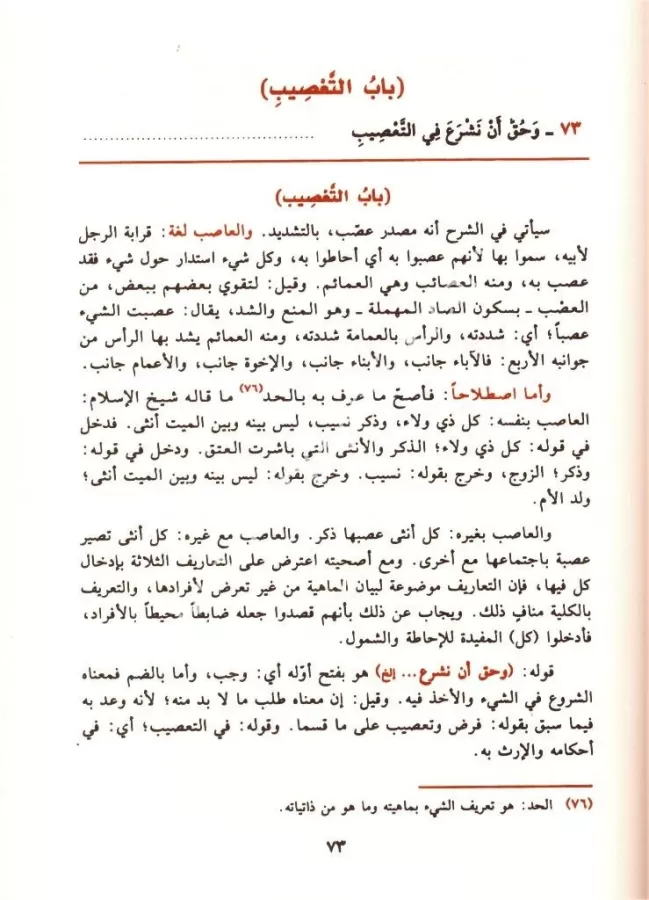 (بابُ التَّعْصِيبِ)
٧٣ ـ وَحُقَّ أَنْ نَشْرَعَ فِي التَّعْصِيبِ ......................................
(بابُ التَّعْصِيب)
سيأتي في الشرح أنه مصدر عصّب، بالتشديد. والعاصب لغة: قرابة الرجل
لأبيه، سموا بها لأنهم عصبوا به أي أحاطوا به، وكل شيء استدار حول شيء فقد
عصب به، ومنه العصائب وهي العمائم. وقيل: لتقوي بعضهم ببعض، من
العصْب ـ بسكون الصاد المهملة ـ وهو المنع والشد، يقال: عصبت الشيء
عصباً؛ أي: شددته، والرأس بالعمامة شددته، ومنه العمائم يشد بها الرأس من
جوانبه الأربع: فالآباء جانب، والأبناء جانب، والإخوة جانب، والأعمام جانب.
وأما اصطلاحاً: فأصحّ ما عرف به بالحد(٧٦) ما قاله شيخ الإسلام:
العاصب بنفسه: كل ذي ولاء، وذكر نسيب، ليس بينه وبين الميت أنثى. فدخل
في قوله: كل ذي ولاء؛ الذكر والأنثى التي باشرت العتق. ودخل في قوله:
وذكر؛ الزوج، وخرج بقوله: نسيب. وخرج بقوله: ليس بينه وبين الميت أنثى؛
ولد الأم.
والعاصب بغيره: كل أنثى عصبها ذكر. والعاصب مع غيره: كل أنثى تصير
عصبة باجتماعها مع أخرى. ومع أصحيته اعترض على التعاريف الثلاثة بإدخال
كل فيها، فإن التعاريف موضوعة لبيان الماهية من غير تعرض لأفرادها، والتعريف
بالكلية منافٍ ذلك. ويجاب عن ذلك بأنهم قصدوا جعله ضابطاً محيطاً بالأفراد،
فأدخلوا (كل) المفيدة للإحاطة والشمول.
قوله: (وحق أن نشرع... إلخ) هو بفتح أوّله أي: وجب، وأما بالضم فمعناه
الشروع في الشيء والأخذ فيه. وقيل: إن معناه طلب ما لا بد منه؛ لأنه وعد به
فيما سبق بقوله: فرض وتعصيب على ما قسما. وقوله: في التعصيب؛ أي: في
أحكامه والإرث به.
(٧٦) الحد: هو تعريف الشيء بماهيته وما هو من ذاتياته.
٧٣